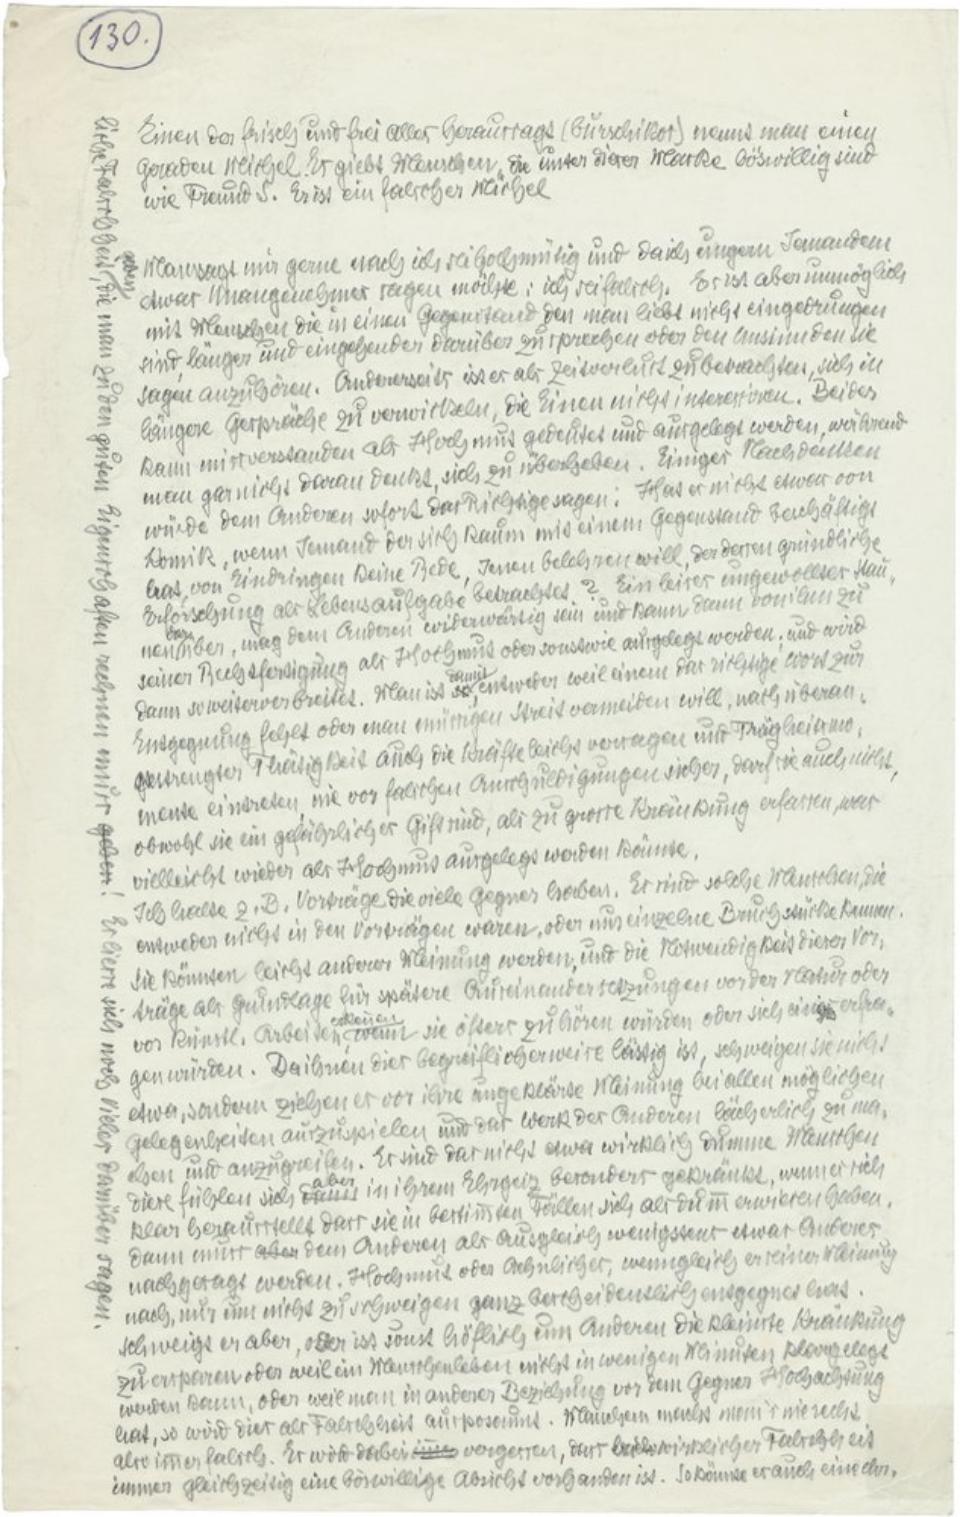 130.
Einen der frisch und frei alles heraussagt (burschikos) nennt man einen
geraden Michel. Es giebt Menschen, die unter dieser Marke böswillig sind
wie Freund S. Er ist ein falscher Michel
Man sagt mir gerne nach ich sei hochmütig und da ich ungern Jemandem
etwas Unangenehmes sagen möchte: ich sei falsch. Es ist aber unmöglich
mit Menschen die in einen Gegenstand den man liebt nicht eingedrungen
sind, länger und eingehender darüber zu sprechen oder den Unsinn den sie
sagen anzuhören. Andererseits ist es als Zeitverlust zu betrachten, sich in
längere Gespräche zu verwickeln, die Einen nicht interessieren. Beides
kann missverstanden als Hochmut gedeutet und ausgelegt werden, während
man garnicht daran denkt, sich zu überheben. Einiges Nachdenken
würde dem Anderen sofort das Richtige sagen: Hat es nicht etwas von
Komik, wenn Jemand der sich kaum mit einem Gegenstand beschäftigt
hat, von Eindringen keine Rede, Jenen belehren will, der deren gründliche
Erforschung als Lebensaufgabe betrachtet.? Ein leises ungewolltes Stau-
nen über, mag dem Anderen widerwärtig sein und kann dann von ihm zu
seiner Rechtfertigung als Hochmut oder sonstwie ausgelegt werden, und wird
dann so weiterverbreitet. Man ist damit entweder weil einem das richtige Wort zur
Entgegnung fehlt oder man müssigen Streit vermeiden will, nach überan-
gestrengter Thätigkeit auch die Kräfte leicht versagen und Trägheitsmo-
mente eintreten, nie vor falschen Anschuldigungen sicher, darf sie auch nicht,
obwohl sie ein gefährliches Gift sind, als zu grosse Kränkung erfassen, was
vielleicht wieder als Hochmut ausgelegt werden könnte.
Ich halte z.B. Vorträge die viele Gegner haben. Es sind solche Menschen, die
entweder nicht in den Vorträgen waren, oder nur einzelne Bruchstücke kennen.
Sie könnten leicht anderer Meinung werden, und die Notwendigkeit dieser Vor-
träge als Grundlage für spätere Auseinandersetzungen vor der Natur oder
vor künstl. Arbeiten erkennen wenn sie öfters zuhören würden oder sich eingehend erfra-
gen würden. Da ihnen dies begreiflicherweise lästig ist, schweigen sie nicht
etwa, sondern ziehen es vor ihre ungeklärte Meinung bei allen möglichen
Gelegenheiten auszuspielen und das Werk des Anderen lächerlich zu ma-
chen und anzugreifen. Es sind das nicht etwa wirklich dumme Menschen
diese fühlen sich aber in ihrem Ehrgeiz besonders gekränkt, wenn es sich
klar herausstellt dass sie in bestimten Fällen sich als dum erwiesen haben.
dann muss dem Anderen als Ausgleich wenigstens etwas Anderes
nachgesagt werden. Hochmut oder Aehnliches, wenngleich er seiner Meinung
nach, nur um nicht zu schweigen ganz bescheidentlich entgegnet hat.
Schweigt er aber, oder ist sonst höflich um Anderen die kleinste Kränkung
zu ersparen oder weil ein Menschenleben nicht in wenigen Minuten klargelegt
werden kann, oder weil man in anderer Beziehung vor dem Gegner Hochachtung
hat, so wird dies als Falschheit ausposaunt. Manchem macht man's nie recht
also imer falsch. Es wird dabei vergessen, dass wirklicher Falschheit
immer gleichzeitig eine böswillige Absicht vorhanden ist. So könnte es auch eine ehr-
liche Falschheit geben, die man zu den guten Eigenschaften rechnen muss! Es liesse sich noch Vieles darüber sagen.